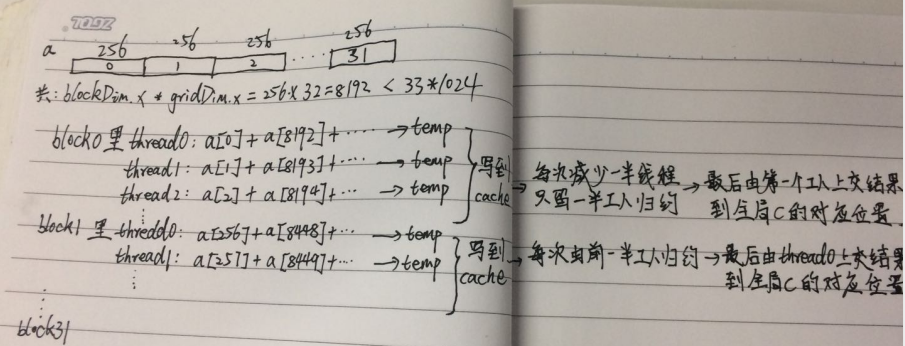 256 256 256 256
a 0 1 2 ····· 31
共: blockDim.x * gridDim.x = 256 x 32 = 8192 < 33*1024
block0里 thread0: a[0]+a[8192]+···· →temp
thread1: a[1]+a[8193]+···· →temp
thread2: a[2]+a[8194]+···· →temp
写到cache → 每次减少一半线程 只留一半工人归约 → 最后由第一个工人上交结果 到全局C的对应位置
block1 里 thread0: a[256]+a[8448]+··· →temp
thread1: a[257]+a[8449]+··· →temp
写到cache → 每次由前一半工人归约 → 最后由thread0上交结果 到全局C的对应位置
block31